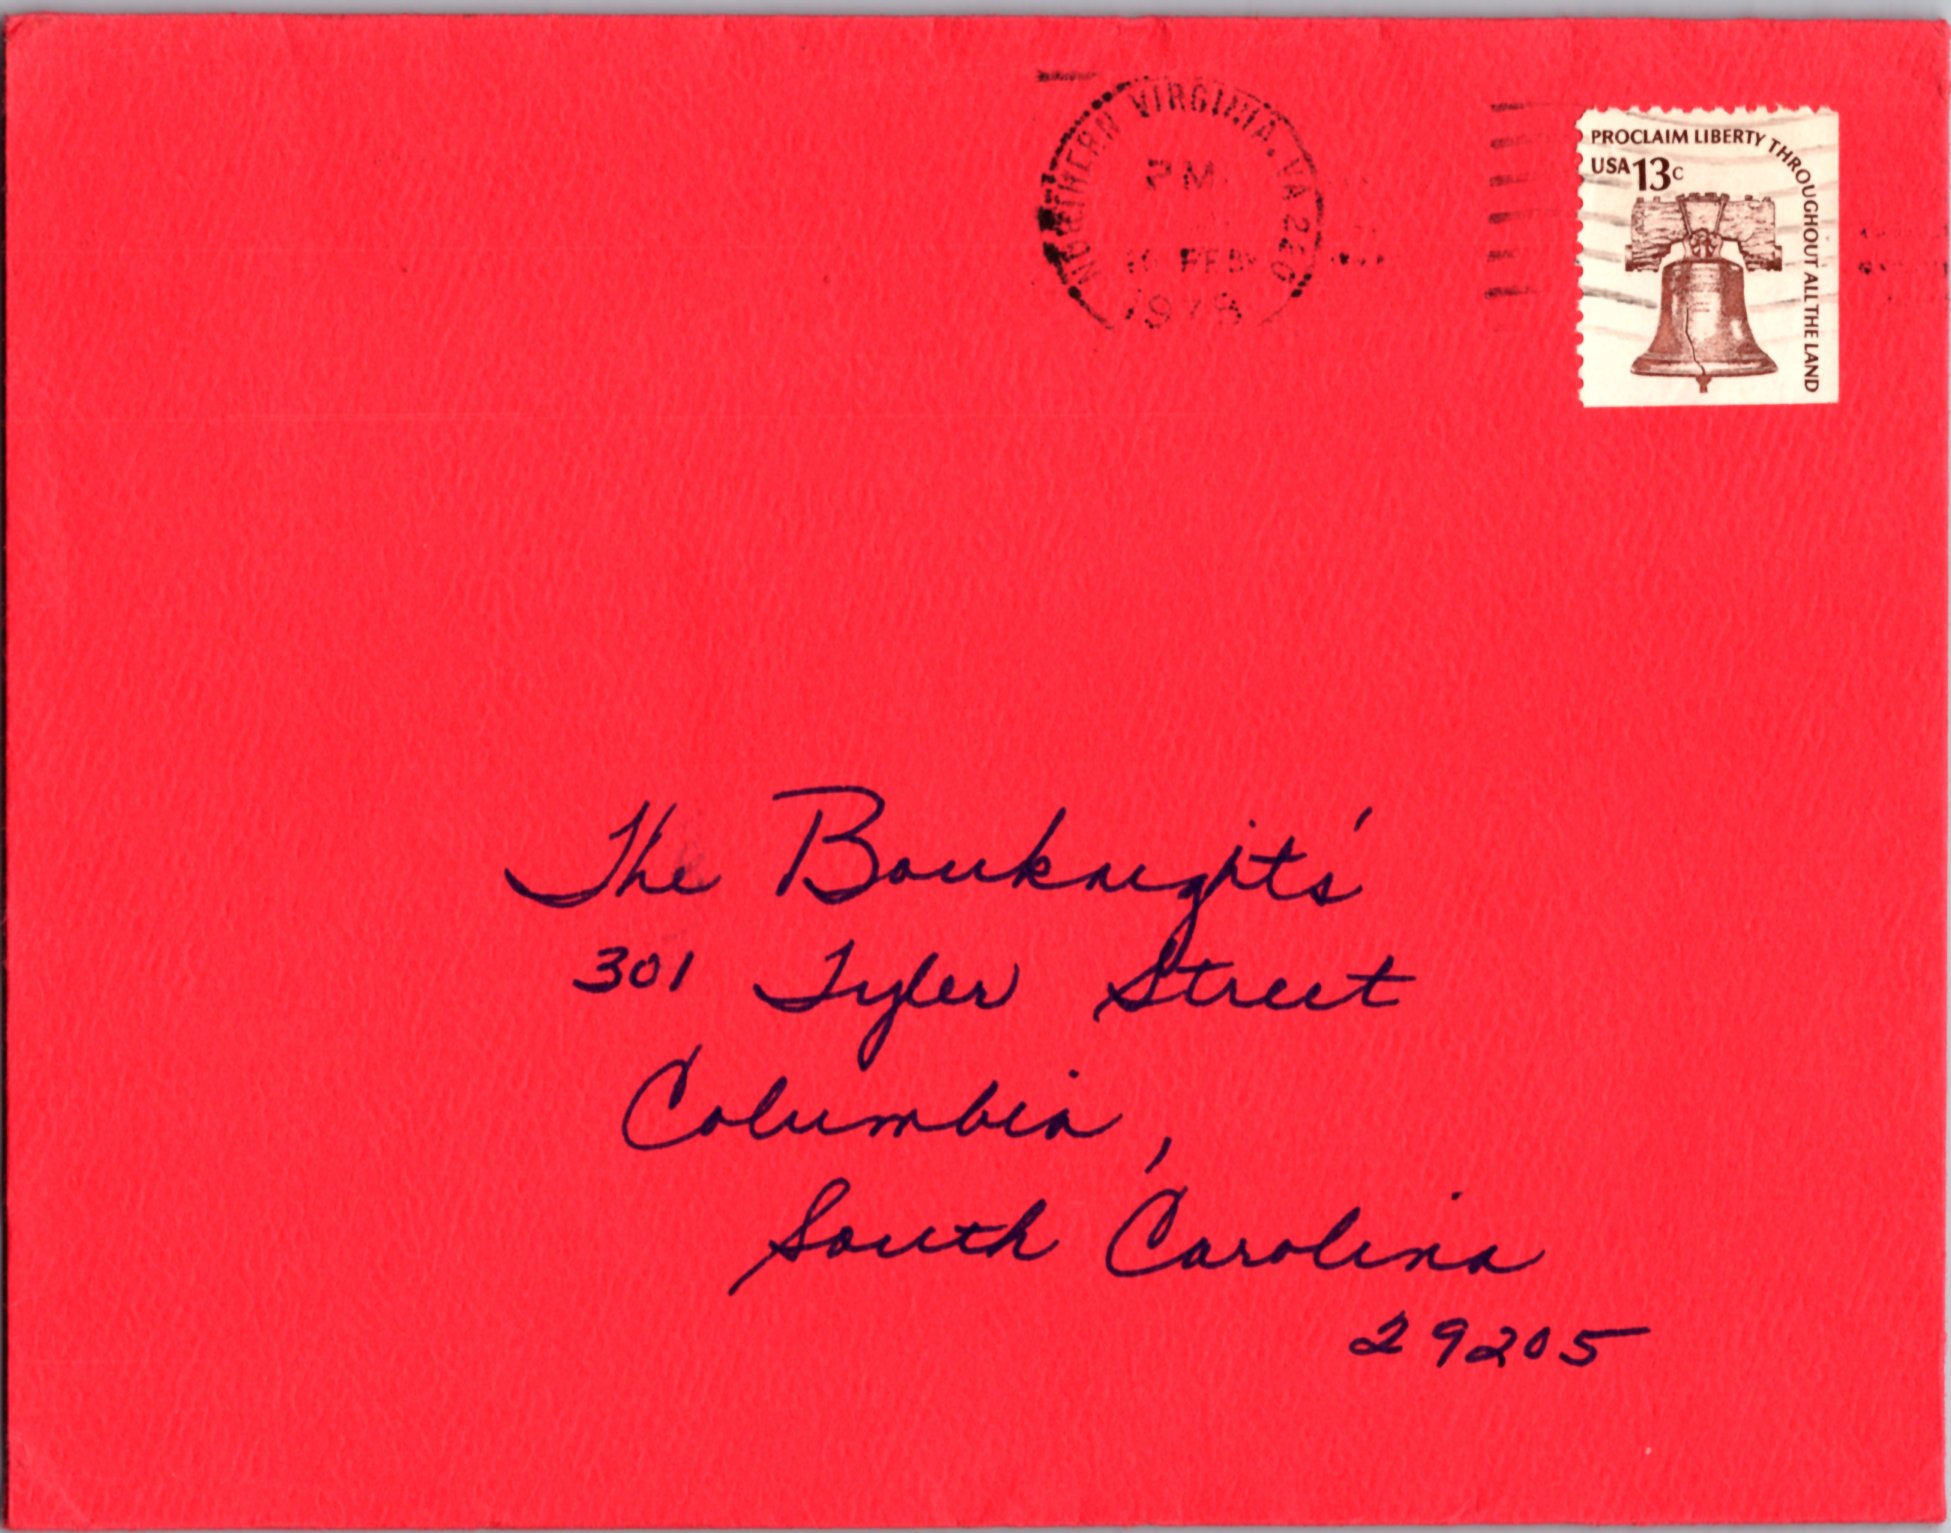 NORTHERN VIRGINIA, VA 220
PM
FEB
1978
PROCLAIM LIBERTY THROUGHOUT ALL THE LAND
USA 13c
The Bouknights'
301 Tyler Street
Columbia,
South Carolina
29205